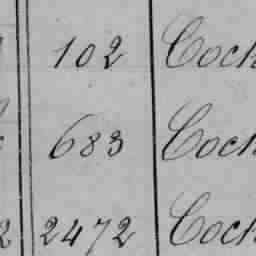 102 Coch
683 Coch
2 2472 Coch